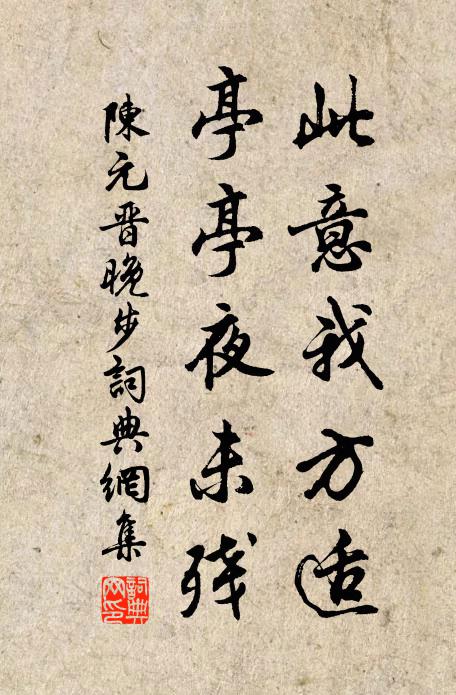 此意我方适
亭亭夜未残
陳元晋晚步詞典網集
詞典網印